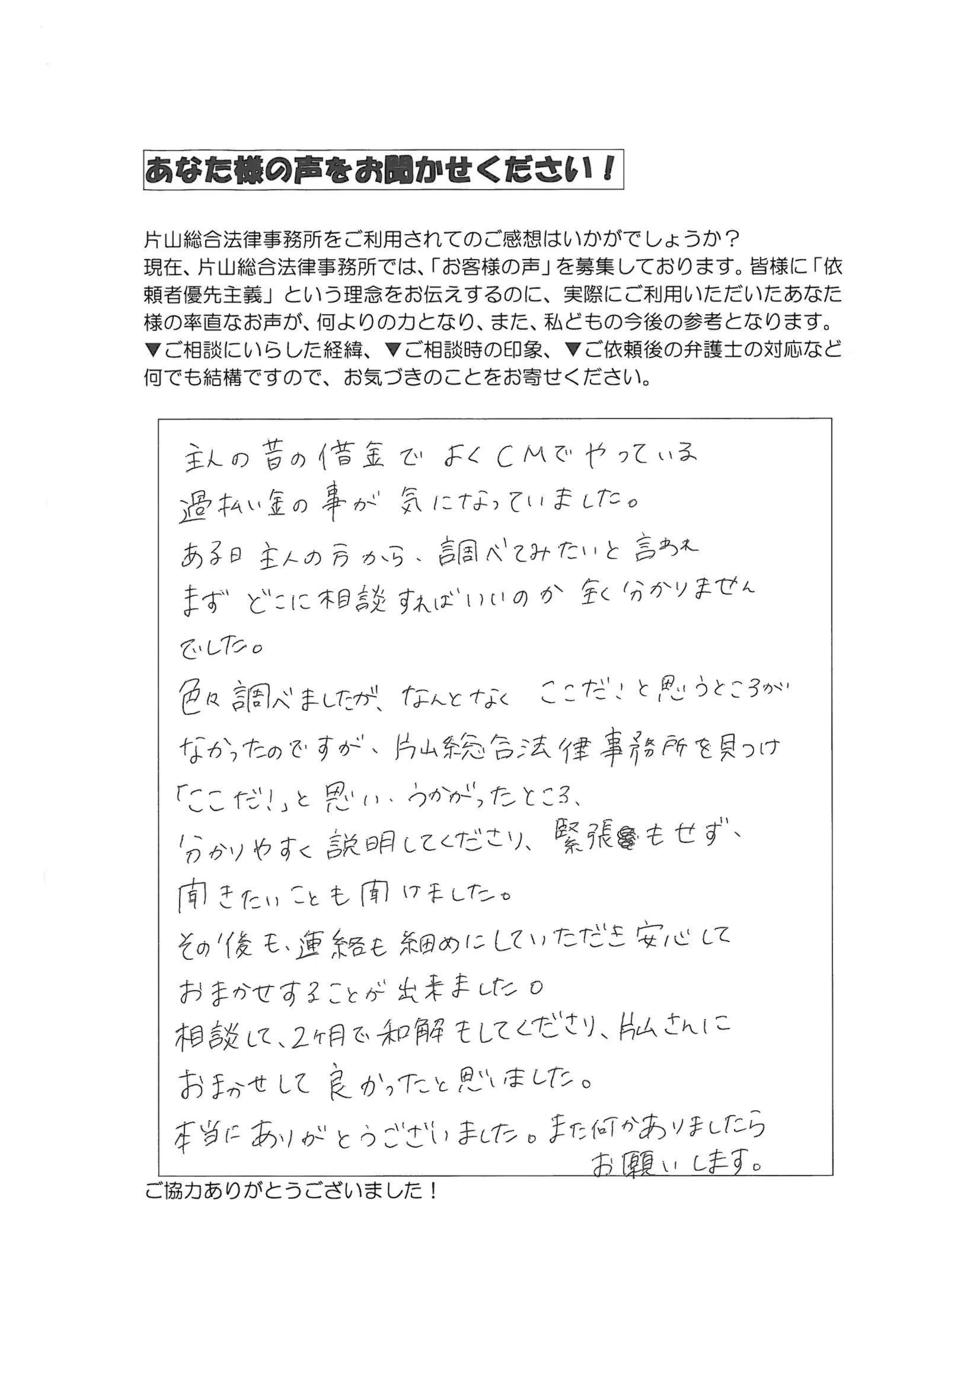 あなた様の声をお聞かせください！
片山総合法律事務所をご利用されてのご感想はいかがでしょうか？
現在、片山総合法律事務所では、「お客様の声」を募集しております。皆様に「依
頼者優先主義」という理念をお伝えするのに、実際にご利用いただいたあなた
様の率直なお声が、何よりの力となり、また、私どもの今後の参考となります。
▼ご相談にいらした経緯、▼ご相談時の印象、▼ご依頼後の弁護士の対応など
何でも結構ですので、お気づきのことをお寄せください。
主人の昔の借金で よくCMでやっている
過払い金の事が 気になっていました。
ある日 主人の方から、調べてみたいと言われ
まず どこに相談すればいいのか 全く分かりません
でした。
色々調べましたが、なんとなく ここだ！と思うところが
なかったのですが、片山総合法律事務所を見つけ
「ここだ！」と思い、うかがったところ、
分かりやすく説明してくださり、緊張もせず、
聞きたいことも聞けました。
その後も、連絡も細めにしていただき安心して
おまかせすることが出来ました。
相談して、2ヶ月で和解もしてくださり、片山さんに
おまかせして良かったと思いました。
本当にありがとうございました。また何かありましたら
お願いします。
ご協力ありがとうございました！